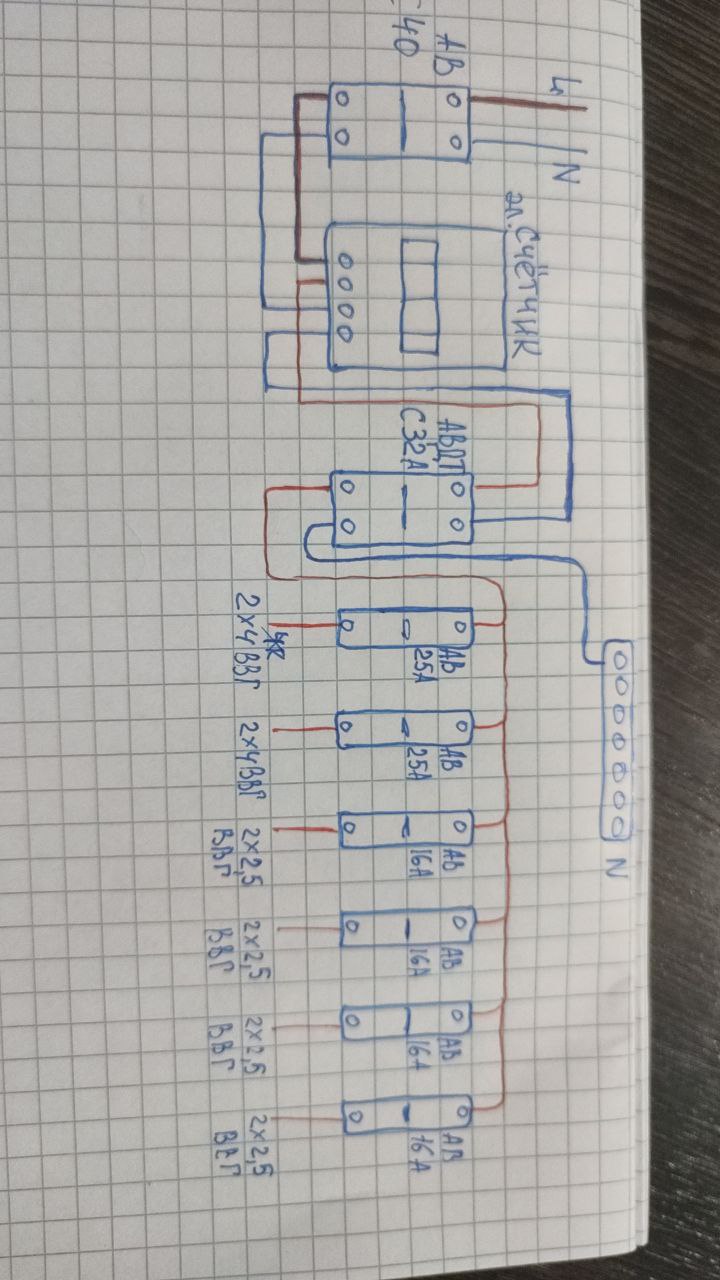 L
N
АВ
40
эл. Счётчик
АВДТ
С32А
N
АВ
25А
АВ
25А
АВ
16А
АВ
16А
АВ
16А
АВ
16А
2х4 ВВГ
2х4ВВГ
2х2,5
ВВГ
2х2,5
ВВГ
2х2,5
ВВГ
2х2,5
ВВГ